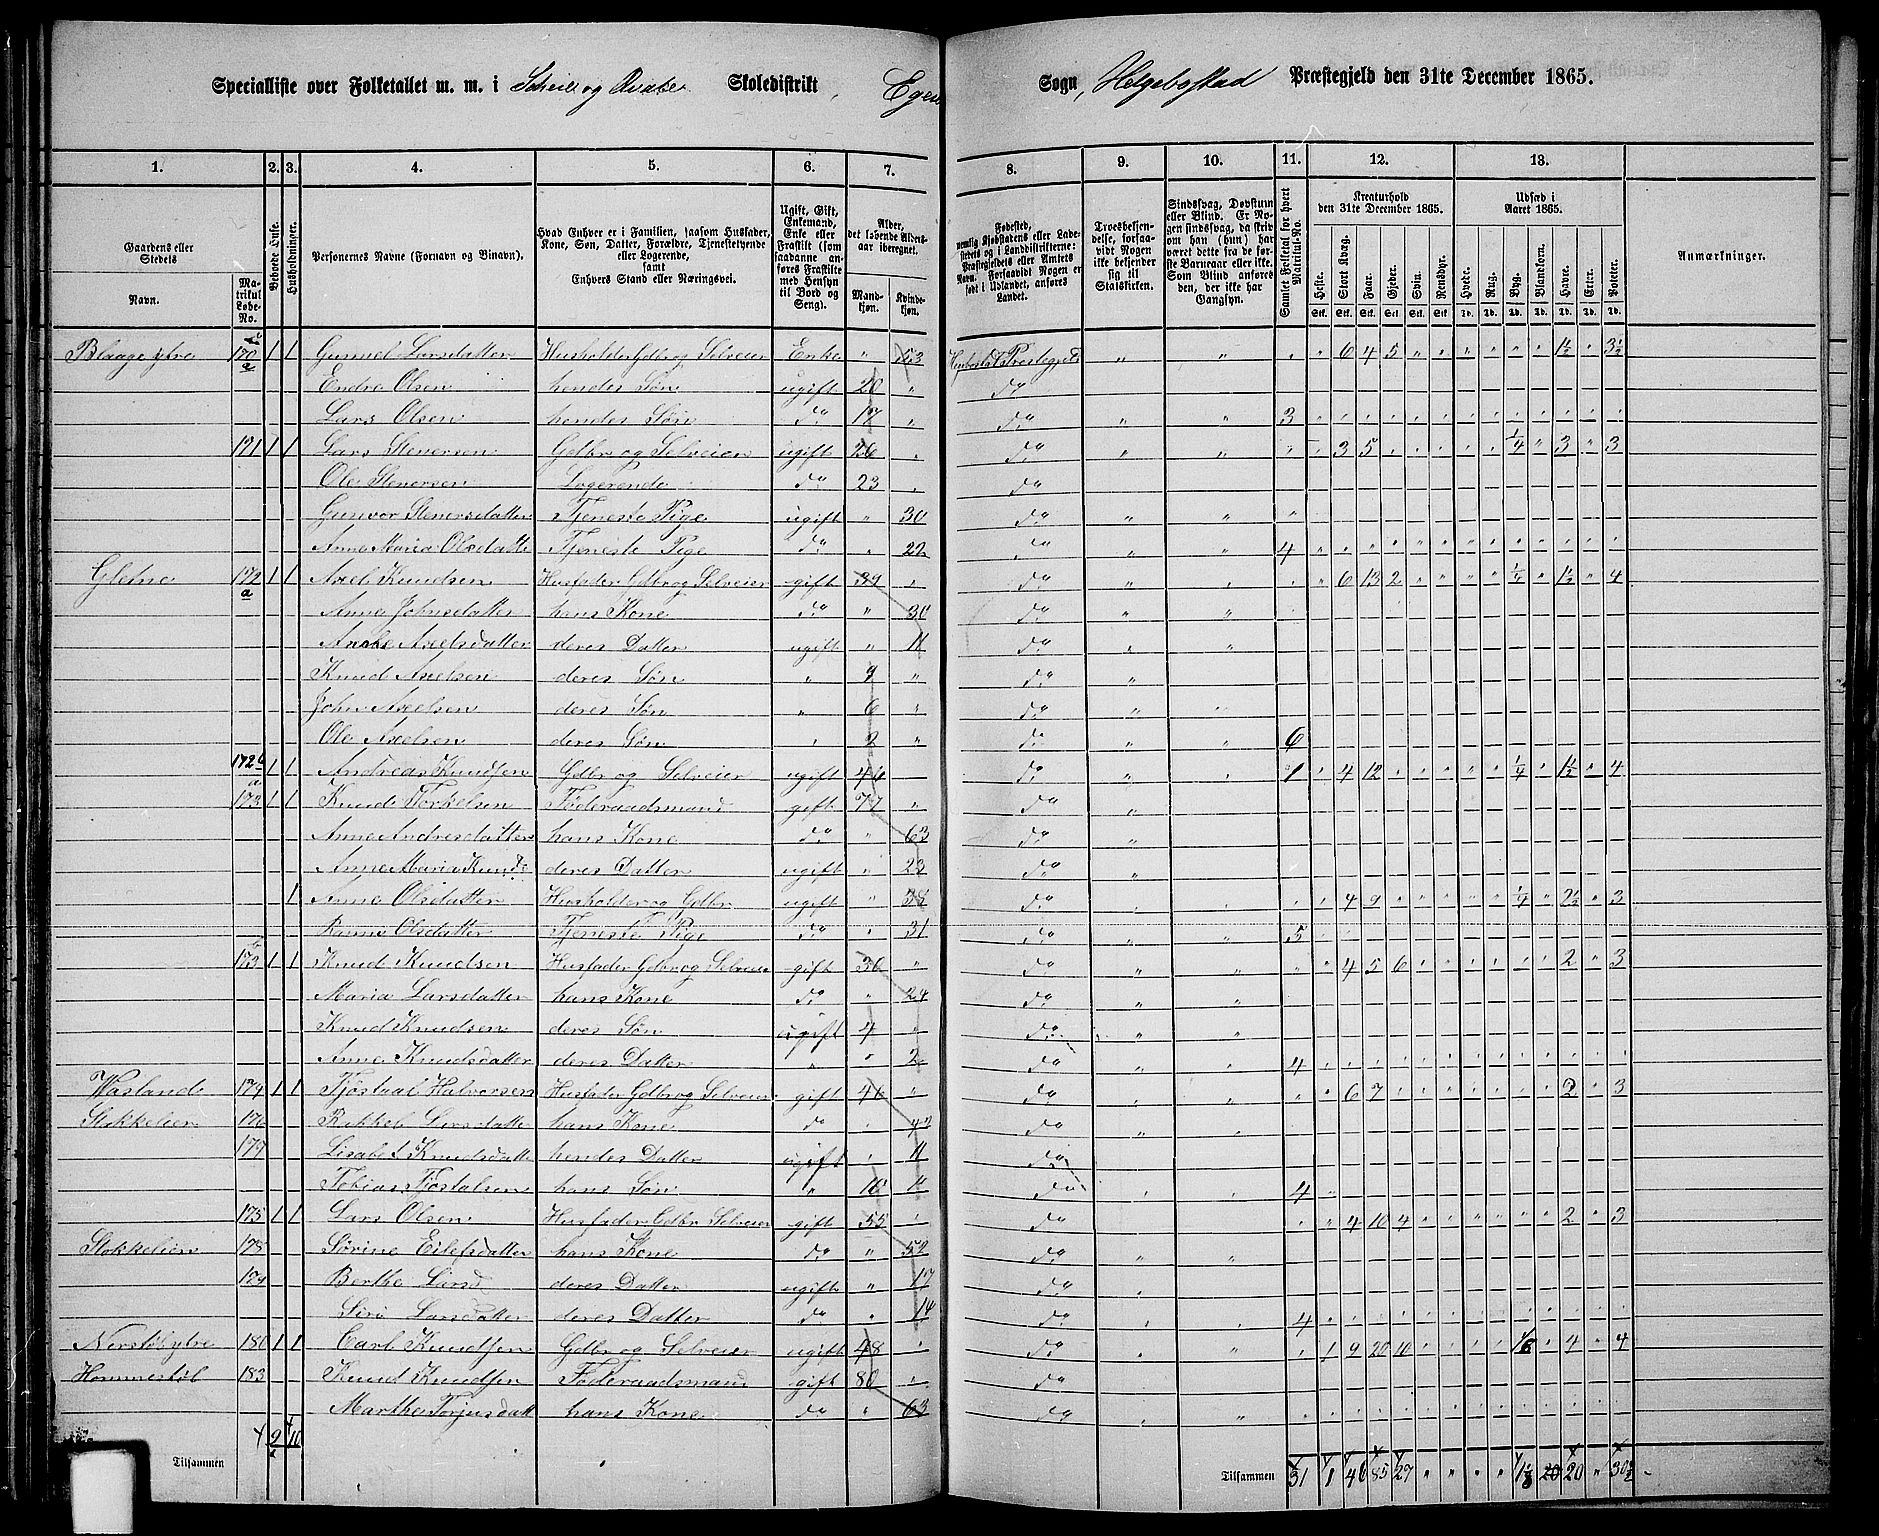 Specialliste over Folketallet m. m. i Scheie og Qvabe Skoledistrikt, Egen
Sogn, Helgebostad Præstegjeld den 31te December 1865.
1. 2. 3. 4. 5. 6. 7. 8. 9. 10. 11. 12. 13.
Gaardens eller Stedets Navn.
Matrikul Løbe-No.
Bebyede Huse.
Husholdninger.
Personernes Navne (Fornavn og Binavn).
Hvad Enhver er i Familien, saasom Husfader, Kone, Søn, Datter, Forældre, Tjenestetyende eller Logerende, samt Enhvers Stand eller Næringsvei.
Ugift, Gift, Enkemand, Enke eller Fraskilt (som saadanne anføres Fraskilte med Hensyn til Bord og Seng).
Alder, det løbende Aldersaar iberegnet.
Mandkjøn.
Kvindekjøn.
Fødested,
Troesbekjendelse, forsaavidt Nogen ikke bekjender sig til Statskirken.
Sindssvag, Døvstum eller Blind. Er Nogen sindssvag, da skrives om han (hun) har været dette fra de første Barneaar eller ikke. Som Blind anføres den, der ikke har Gangsyn.
Samlet Folketal for hvert Matrikul-No.
Kreaturhold den 31te December 1865.
Heste. Stort Kvæg. Faar. Gjeder. Sviin. Rensdyr.
Udsæd i Aaret 1865.
Hvede. Rug. Byg. Blandkorn. Havre. Erter. Poteter.
Anmærkninger.
Blaage ytre 170 a 1 1 Gunnel Larsdatter Husholder Gdbr og Selveier Enke " 53 " " " " 6 4 5 " " " " " " 1½ " 3½
Endre Olsen hendes Søn ugift 20 " do
Lars Olsen hendes Søn do 17 " do " " 3
171 1 1 Lars Stenersen Gdbr og Selveier ugift 26 " do " " " 3 5 " " " " " ¼ " 3 " 3
Ole Stenersen Logerende do 23 " do
Gunvor Stenersdatter Tjeneste Pige ugift " 30 do " " "
Anne Maria Olsdatte Tjeneste Pige do " 22 do " " 4
Gletne 172 a 1 1 Axel Knudsen Husfader Gdbr og Selveier gift 39 " do " " " " 6 13 2 " " " " ¼ " 1½ " 4
Anne Johnsdatter hans Kone do " 30 do " "
Axelsdatter deres Datter ugift " 11 do " "
Knud Axelsen deres Søn " 9 " do "
John Axelsen deres Søn " 6 " do " "
Ole Axelsen deres Søn " 2 " do " " 6
172 b 1 1 Andreas Knudsen Gdbr og Selveier ugift 46 do " " 1 " 4 12 " " " " " ¼ " 1½ " 4
173 a 1 1 Knud Torkelsen Føderaadsmand gift 77 " do "
Anne Andresdatter hans Kone do " 63 do "
Anne Maria Knudsd deres Datter ugift " 23 do "
1 Anne Olsdatter Husholder og Gdbr ugift " 38 do " " " " 4 9 " " " " " ¼ " 2½ " 3
Olsdatter Tjeneste Pige do " 31 do " " 5
173 b 1 1 Knud Knudsen Husfader Gdbr og Selveier gift 36 " do " " " " 4 5 6 " " " " " " 2 " 3
Maria Larsdatter hans Kone do " 24 do " "
Knud Knudsen deres Søn ugift 4 " do " "
Anne Knudsdatter deres Datter " " 2 do " " 4
Vasland 174 1 1 Tjøstaal Halvorsen Husfader Gdbr og Selveier gift 46 " do " " " " 6 7 " " " " " " " 2 " 3
Stokkelien 176 Larsdatter hans Kone do " 42 do " "
177 Lisabet Knudsdatte hendes Datter ugift " 11 do
Tobias Tjøstalsen hans Søn " 10 " do " " 4
175 1 1 Lars Olsen Husfader Gdbr Selveier gift 55 " do " " 4 10 4 " " " " " " 2 " 3
Stokkelien 178 Sørine Eilefsdatter hans Kone do " 52 do " "
179 Berthe Larsd deres Datter ugift " 17 do "
Siri Larsdatter deres Datter do " 14 do " " 4
Nerstøbytre 180 1 1 Carl Knudsen Gdbr og Selveier ugift 48 " do " " " 1 9 20 10 " " " " " 4 " 4
Hommestøl 183 Knud Knudsen Føderaadsmand gift 80 " do
Marthe Torjusdatt hans Kone do " 63 do " "
Tilsammen 9 10
Tilsammen 31 1 46 85 27 " " " " 1⅛ 20 20 " 30½